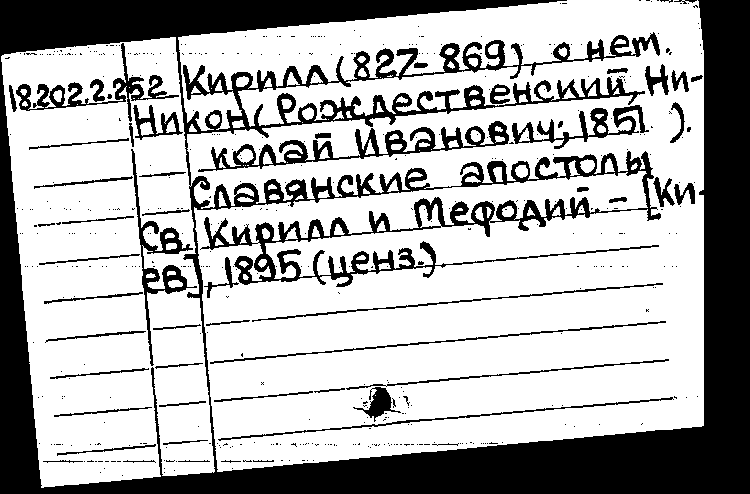 18.202.2.252 Кирилл (827-869), о нем.
Никон (Рождественский, Ни-
колай Иванович; 1851 ).
Славянские апостолы
Св. Кирилл и Мефодий. - [Ки-
ев], 1895 (ценз.).